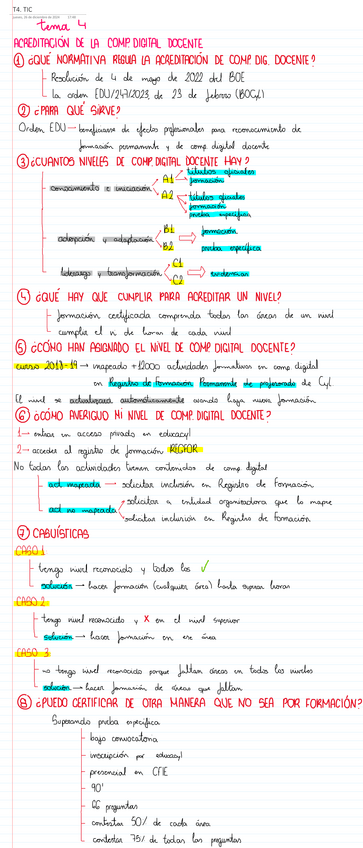 T4. TIC
tema 4
ACREDITACIÓN DE LA COMP. DIGITAL DOCENTE
① ¿QUÉ NORMATIVA REGULA LA ACREDITACIÓN DE COMP. DIG. DOCENTE?
Resolución de 4 de mayo de 2022 del BOE
La orden EDU/247/2023, de 23 de febrero (BOCyL)
② ¿PARA QUÉ SIRVE?
Orden EDU → beneficiarse de efectos profesionales para reconocimiento de
formación permanente y de comp. digital docente
③ ¿CUANTOS NIVELES DE COMP. DIGITAL DOCENTE HAY?
conocimiento e iniciación
A1
títulos oficiales
formación
A2
títulos oficiales
formación
prueba específica
adopción y adaptación
B1
B2
formación
prueba específica
liderazgo y transformación
C1
C2
evidencias
④ ¿QUÉ HAY QUE CUMPLIR PARA ACREDITAR UN NIVEL?
formación certificada comprenda todas las áreas de un nivel
cumplir el nº de horas de cada nivel
⑤ ¿CÓMO HAN ASIGNADO EL NIVEL DE COMP DIGITAL DOCENTE?
curso 2018-19 → mapeado +1200 actividades formativas en comp digital
en Registro de Formación Permanente de profesorado de CyL
El nivel se actualizará automáticamente cuando haya nueva formación
⑥ ¿CÓMO AVERIGUO MI NIVEL DE COMP. DIGITAL DOCENTE?
1→ entrar en acceso privado en educacyl
2→ acceder al registro de formación: REGFOR
No todas las actividades tienen contenidos de comp digital
act mapeada → solicitar inclusión en Registro de Formación
act no mapeada
solicitar a entidad organizadora que lo mapee
solicitar inclusión en Registro de Formación
⑦ CASUÍSTICAS
CASO 1
tengo nivel reconocido y todos los ✓
solución → hacer formación (cualquier área) hasta superar horas
CASO 2
tengo nivel reconocido y X en el nivel superior
solución → hacer formación en ese área
CASO 3
no tengo nivel reconocido porque faltan áreas en todos los niveles
solución → hacer formación de áreas que faltan
⑧ ¿PUEDO CERTIFICAR DE OTRA MANERA QUE NO SEA POR FORMACIÓN?
Superando prueba específica
bajo convocatoria
inscripción por educacyl
presencial en CFIE
90'
66 preguntas
contestar 50% de cada área
contestar 75% de todas las preguntas